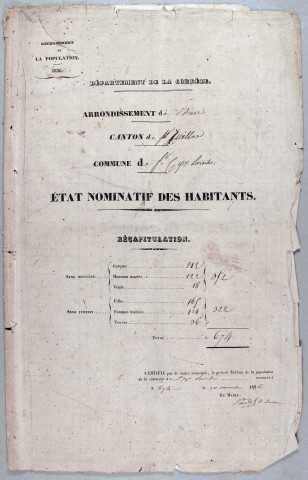 RECENSEMENT
DE
LA POPULATION.
1836.
DÉPARTEMENT DE LA CORRÈZE.
ARRONDISSEMENT d
CANTON d
COMMUNE d
ÉTAT NOMINATIF DES HABITANTS.
RÉCAPITULATION.
SEXE MASCULIN. Garçons 212
Hommes mariés 122 352
Veufs 18
SEXE FÉMININ. Filles 165
Femmes mariées 121 322
Veuves 36
TOTAL 674
CERTIFIÉ par le maire soussigné, le présent Tableau de la population
de la commune d
Le Maire,